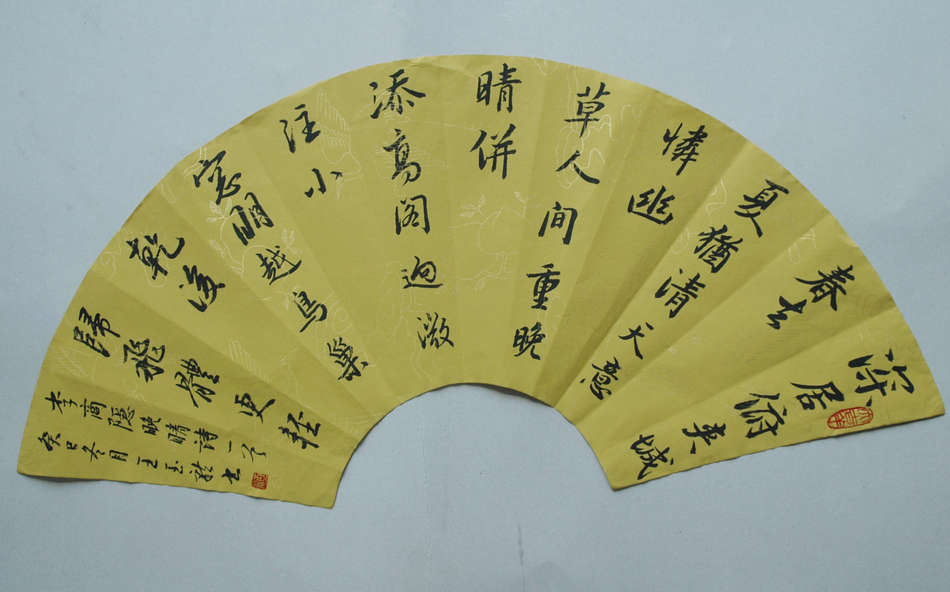 深居俯夹城
春去
夏猶清天意
憐幽
草人间重晚
晴併
添高阁迥微
注小
窓明越鳥巢
乾後
歸飛體更轻
李商隐晚晴诗一首
癸巳冬月王玉书